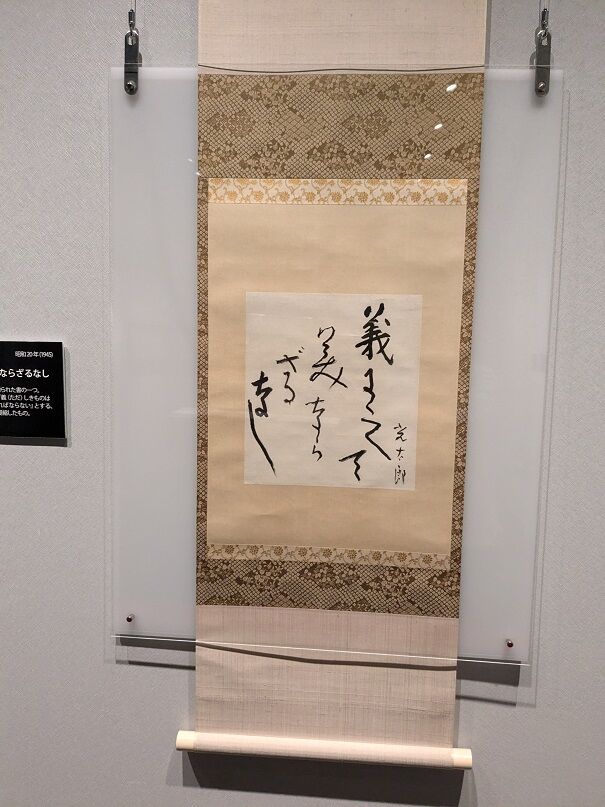 義
美なら
ざる
なし
光太郎
昭和20年(1945)
ならざるなし
られた書の一つ。
義(ただ)しきものは
ればならない」とする、
縮したもの。